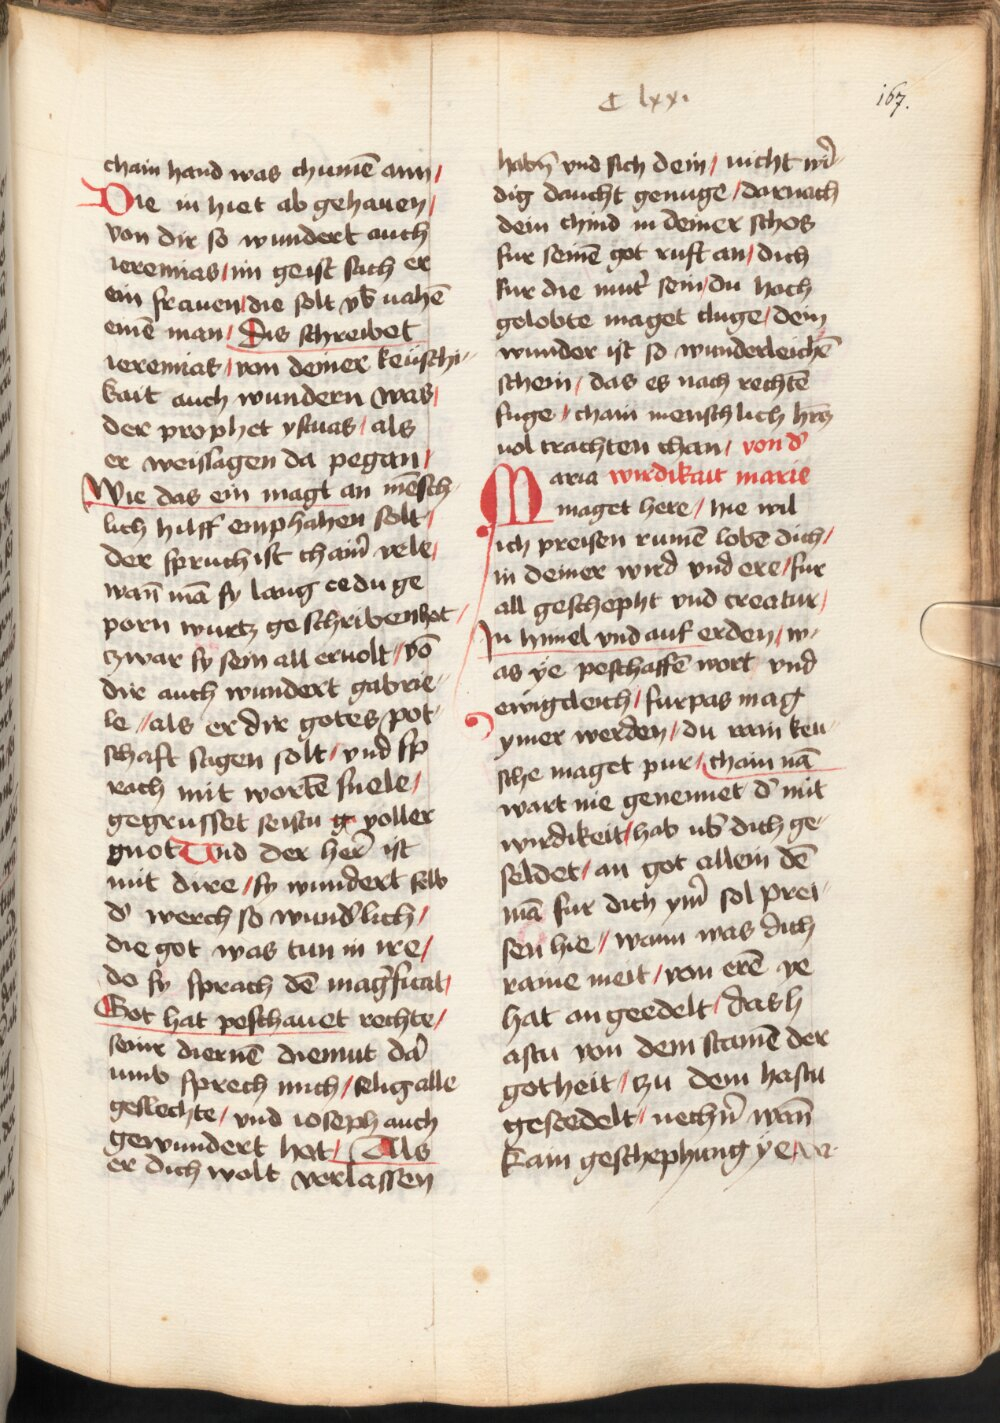 C lxx.
167.
chain hand was chumē ann /
Die in hiet ab gehauen /
von dir so wundert auch
ieremias / im geist sach er
ein frauen / die solt vb̄ vahē
einē man / Dis schreibet
ieremias / von deiner keuschi
kait auch wundern was /
der prophet ysaias / als
er weislagen da pegan /
Wie das ein magt an mēsch
lich hilff emphahen solt /
der spruch ist chain̄ vele /
wan̄ mā sy lang ee du ge
porn wurtz geschriben het /
tzwar sy sein all ervolt // vō
dir auch wundert gabrie
le // als er dir gotes pot
schaft sagen solt / vnd sp
rach mit wortē snele /
gegrusset seistu voller
gnot Vnd der her̄ ist
mit dire / sy wundert selb
d̄ werch so wund̄lich /
die got was tun in ire /
do sy sprach dē magn̄ficat /
Got hat peschauet rechte /
seinr diernē diemut dar̄
umb sprech mich / selig alle
geslechte / vnd ioseph auch
gewundert hat / Als
er dich wolt verlassen
habn̄ vnd sich dein / nicht wir̄
dig daucht genuge / darnach
dein chind in deiner schos
fur seinē got ruft an / dich
fur die mut̄ sein / du hoch
gelobte maget cluge / dein
wunder ist so wunderleichē
schein / das es nach rechtē
fuge / chain menschlich hrc̄z
vol trachten chan / von d̄
Maria wirdikait marie
maget here / hie wil
ich preisen rumē lobē dich /
in deiner wird vnd ere / fur
all geschepht vnd creatur /
In himel vnd auf erden / w
as ye peschaffē wort vnd
ewigcleich / furpas mag
ymer werden / du rain keu
sche maget pur / chain nā
wart nie genennet d̄ mit
wirdikeit / hab vb̄ dich ge
seldet / an got allein dē
mā fur dich ym̄ sol prei
sen hie // wann was dich
raine meit / von erē ye
hat an geedelt / das h
astu von dem stamē der
gotheit / zu dem hastu
geseedelt / nechn̄ wan̄
kain geschephung ye